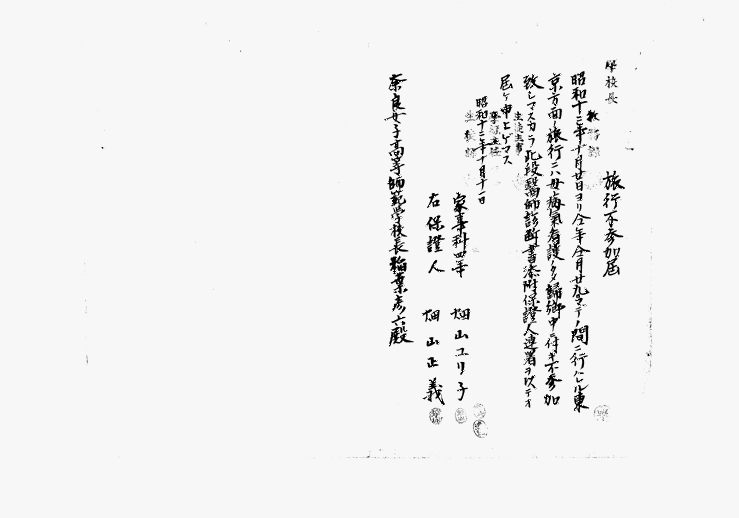 學校長
旅行不参加届
昭和十二年十月廿日ヨリ仝年仝月廿九マデノ間ニ行ハレル東
京方面ノ旅行ニハ母ノ病氣看護ノタメ歸鄉中ニ付キ不参加
致シマスカラ此段醫師診断書添附保證人連署ヲ以テオ
届ケ申上ゲマス
昭和十二年十月十一日
家事科四年 畑山ユリ子
右保證人 畑山正義
奈良女子高等師範學校長稲葉彦六殿